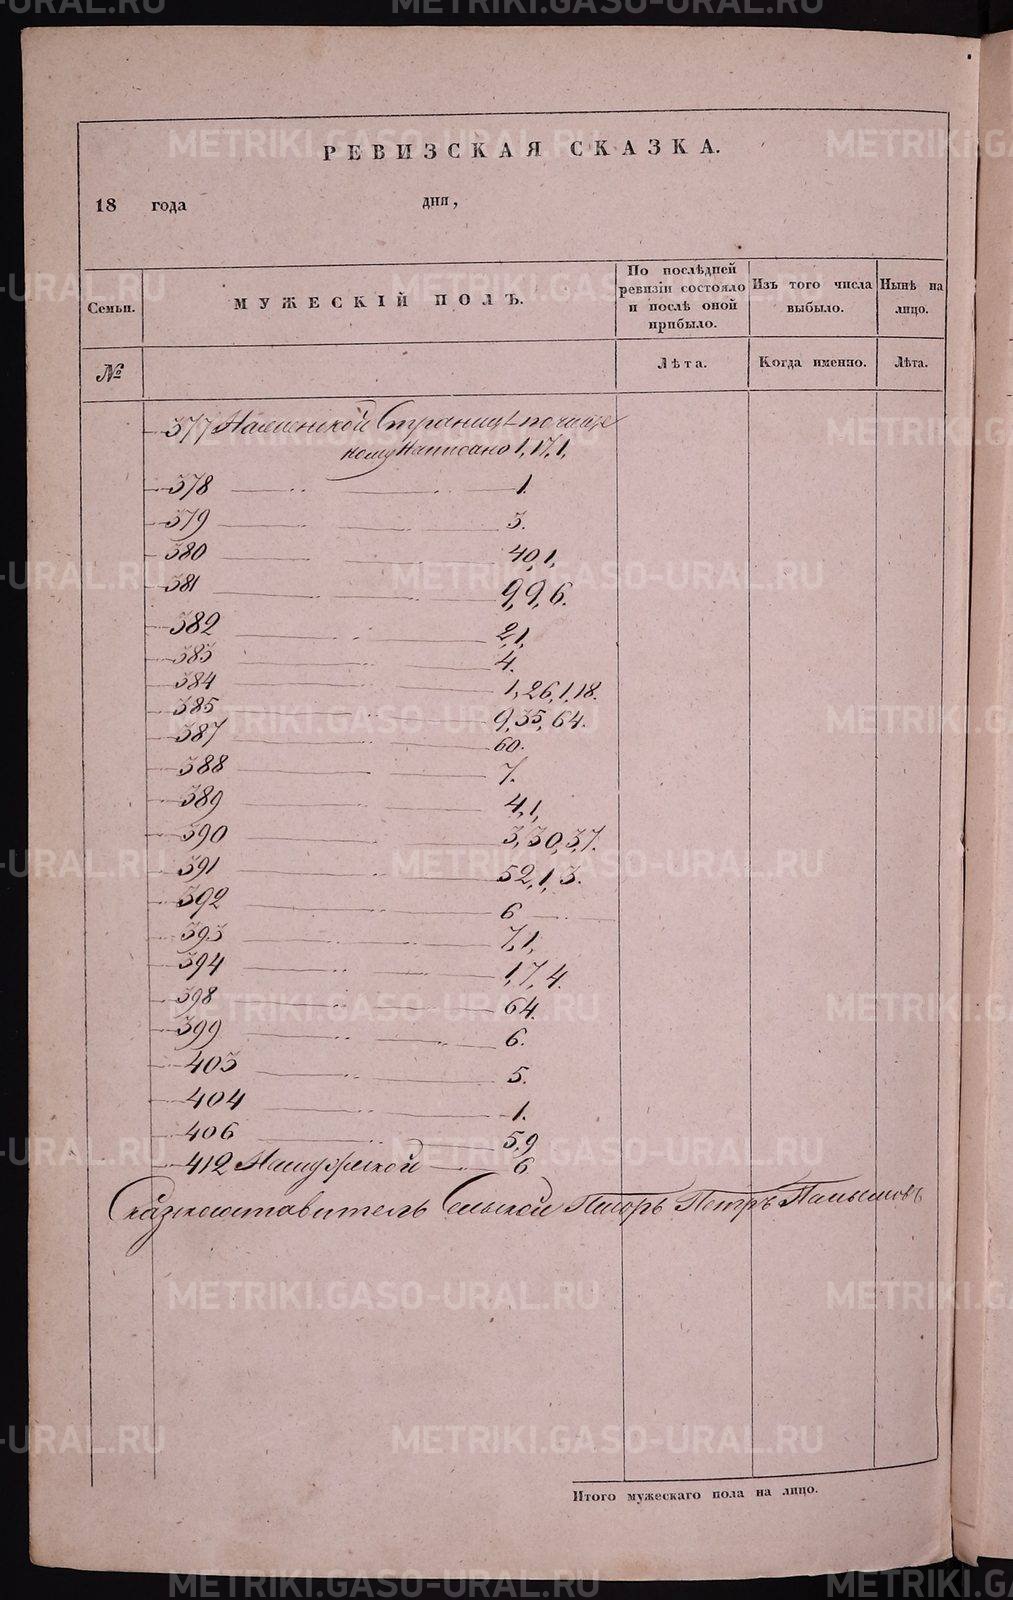 РЕВИЗСКАЯ СКАЗКА.
18 года дня,
Семьи.
МУЖЕСКІЙ ПОЛЪ.
По послѣдней ревизіи состояло и послѣ оной прибыло.
Изъ того числа выбыло.
Нынѣ на лицо.
№
Лѣта.
Когда именно.
Лѣта.
377 На женской Страницѣ по чищеному Написано 1, 17, 1,
378 1.
379 3.
380 40, 1,
381 9, 9, 6.
382 2, 1,
383 4.
384 1, 26, 1, 18.
385 9, 35, 64.
387 60.
388 7.
389 4, 1,
390 3, 30, 37.
391 52, 1, 3.
392 6
393 7, 1,
394 1, 7, 4.
398 64.
399 6.
403 5.
404 1.
406 5, 9
412 На мужеской 6
Сказкосоставитель Сельской Писарь Петръ
Итого мужескаго пола на лицо.
METRIKI.GASO-URAL.RU